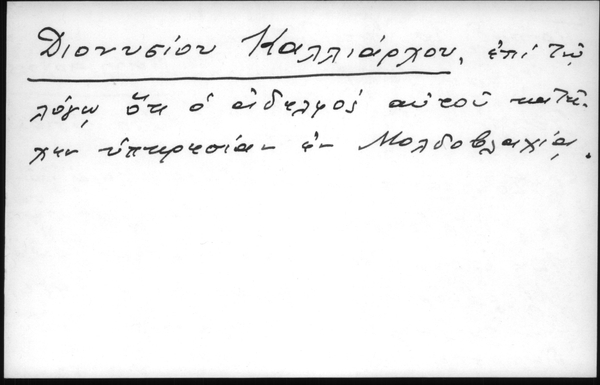 Διονυσίου Καλλιάρχου, ἐπὶ τῷ
λόγῳ ὅτι ὁ ἀδελφὸς αὐτοῦ κατεῖ-
χεν ὑπηρεσίαν ἐν Μολδοβλαχίᾳ.